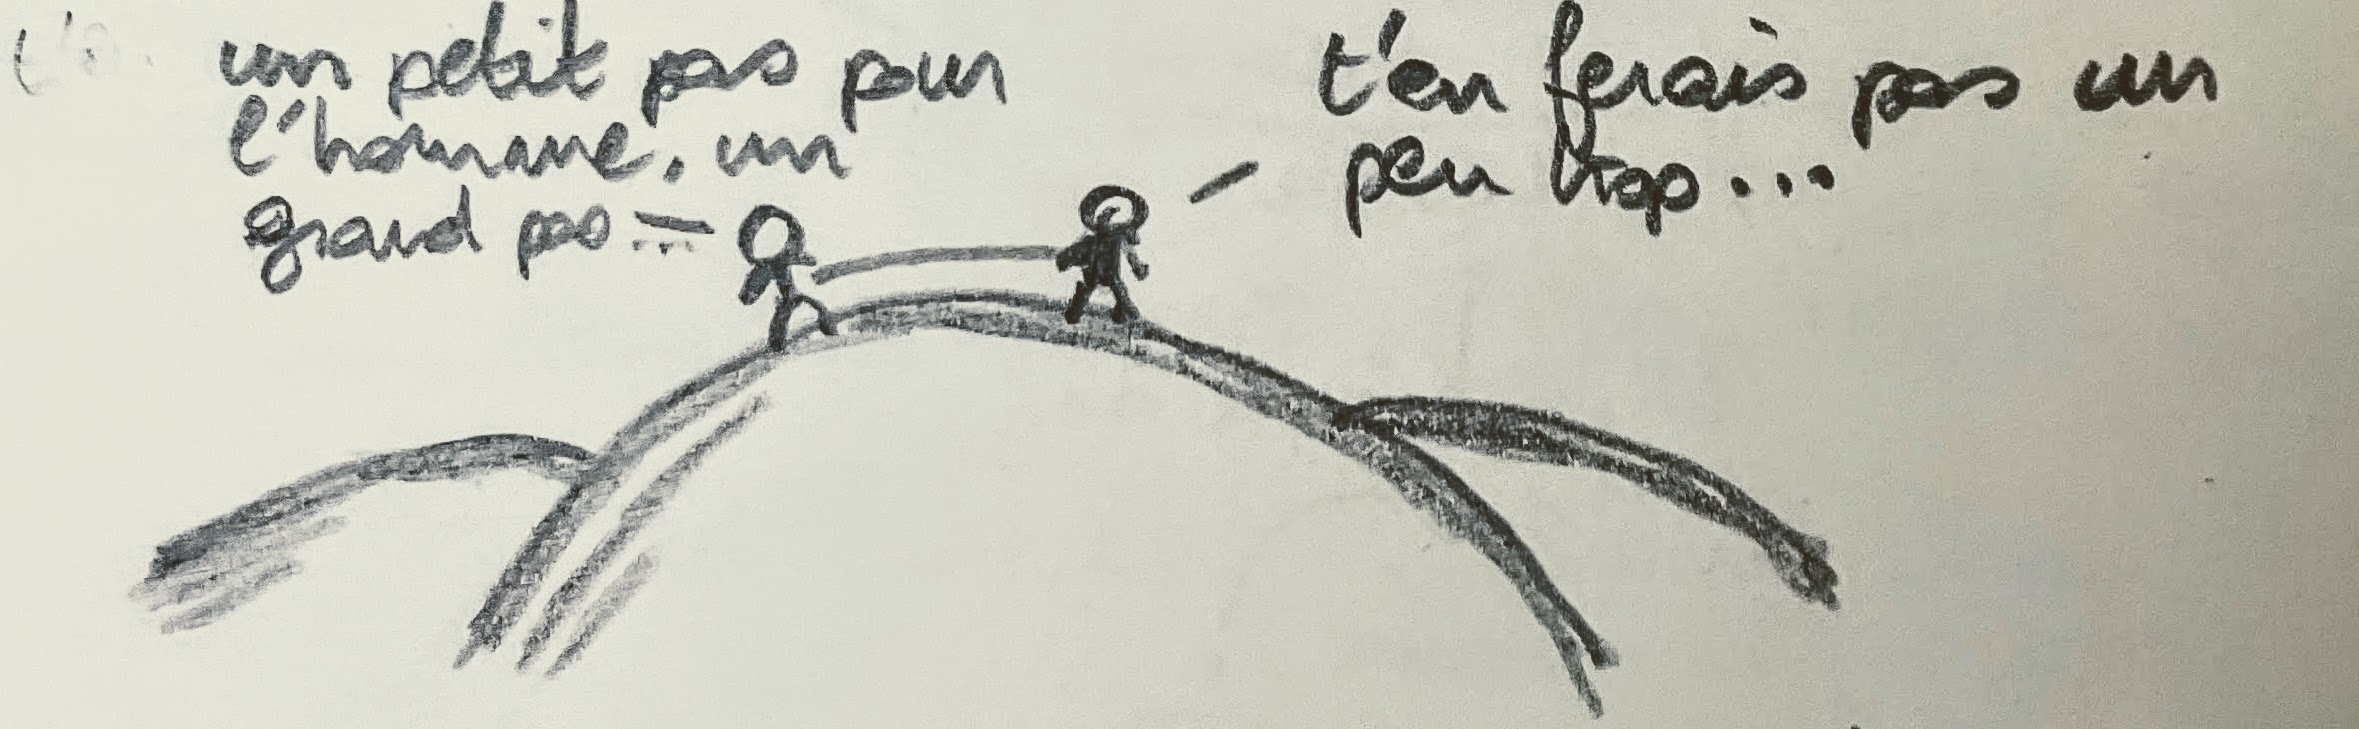 un petit pas pour
l'homme, un
grand pas...
t'en ferais pas un
peu trop...